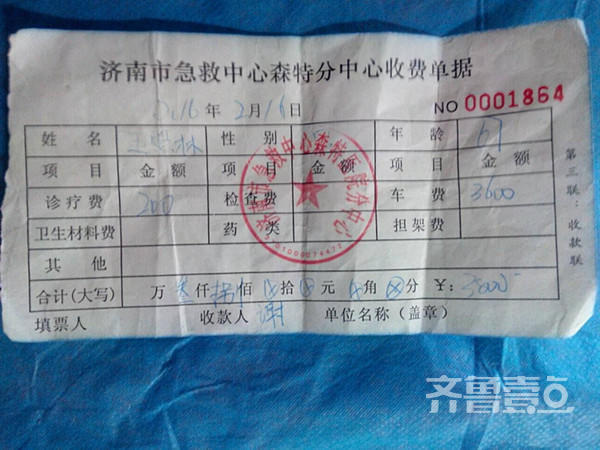 济南市急救中心森特分中心收费单据
2016年2月16日 NO 0001864
姓名 林 性别 年龄 67
项目 金额 项目 金额 项目 金额
诊疗费 200 检查费 车费 3600
卫生材料费 药类 担架费
其他
合计(大写) 万叁仟捌佰⊗拾⊗元⊗角⊗分 ¥:3800
填票人 收款人 谢 单位名称(盖章)
第三联:收款联
济南市急救中心森特医院分中心
齐鲁壹点